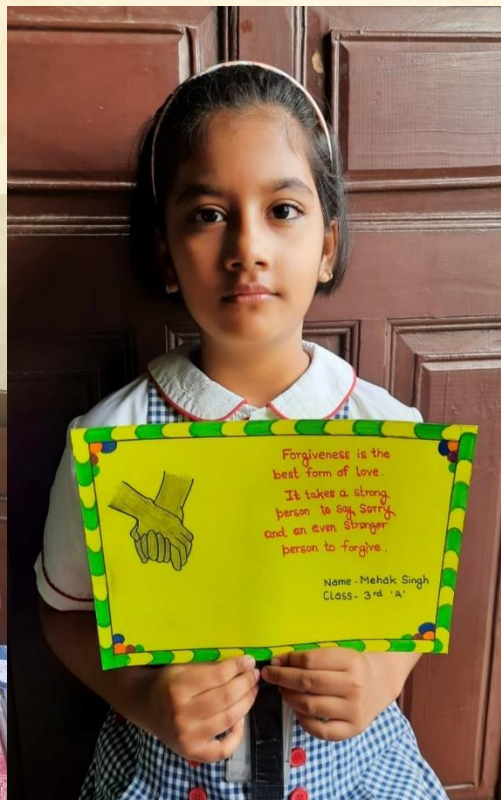 Forgiveness is the
best form of love.
It takes a strong
person to say sorry
and an even stronger
person to forgive.
Name - Mehak Singh
Class - 3rd 'A'